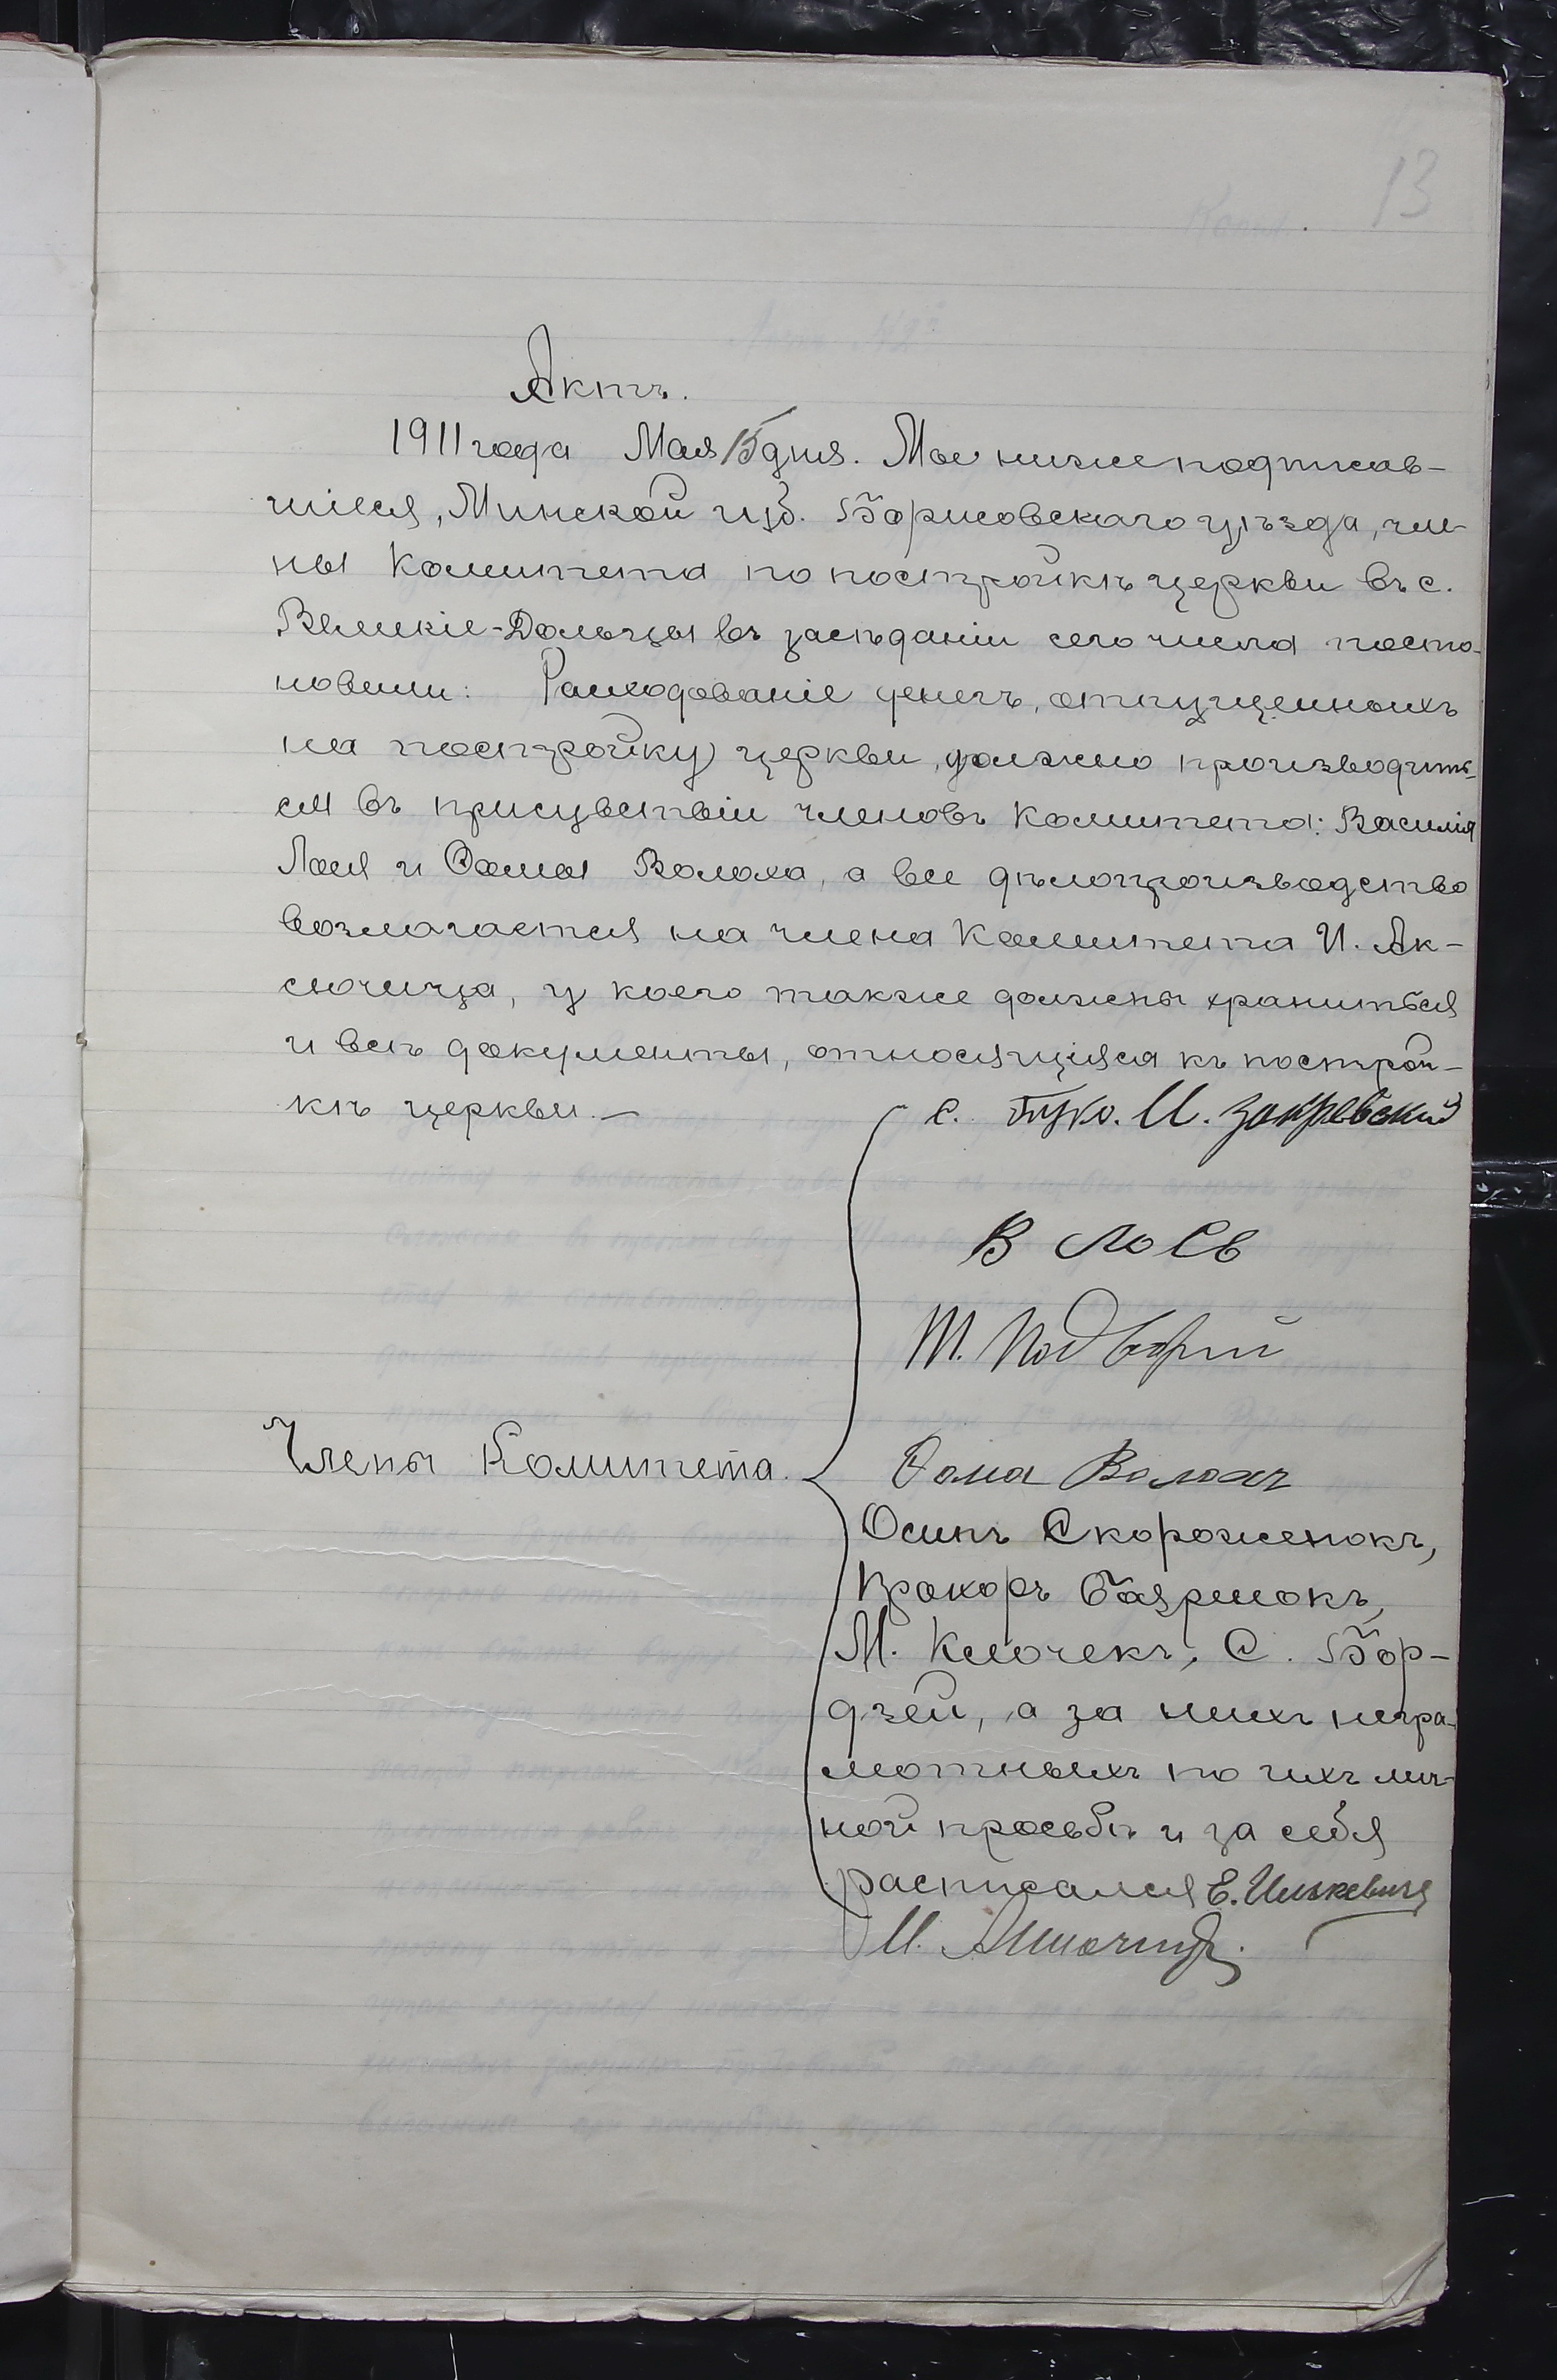 13
Актъ.
1911 года Мая 15 дня. Мы нижеподписав-
шіеся, Минской губ. Борисовскаго уѣзда, чле-
ны Комитета по постройкѣ церкви въ с.
Великіе-Дольцы въ засѣданіи сего числа поста-
новили: Расходованіе денегъ, отпущенныхъ
на постройку церкви, должно производить-
ся въ присувствіи членовъ Комитета: Василія
Лося и Ѳомы Волоха, а все дѣлопроизводство
возлагается на члена Комитета И. Ак-
сючица, у коего также должны храниться
и всѣ документы, относящіяся къ построй-
кѣ церкви.—
с. И. Закревский
В Лось
Т. Подворній
Члены Комитета.
Ѳома Волохъ
Осипъ Скороженокъ,
Прохоръ
М. Клочекъ, С. Бор-
дзей, а за нихъ негра-
мотныхъ по ихъ лич-
ной просьбѣ и за себя
расписался Е.
И.